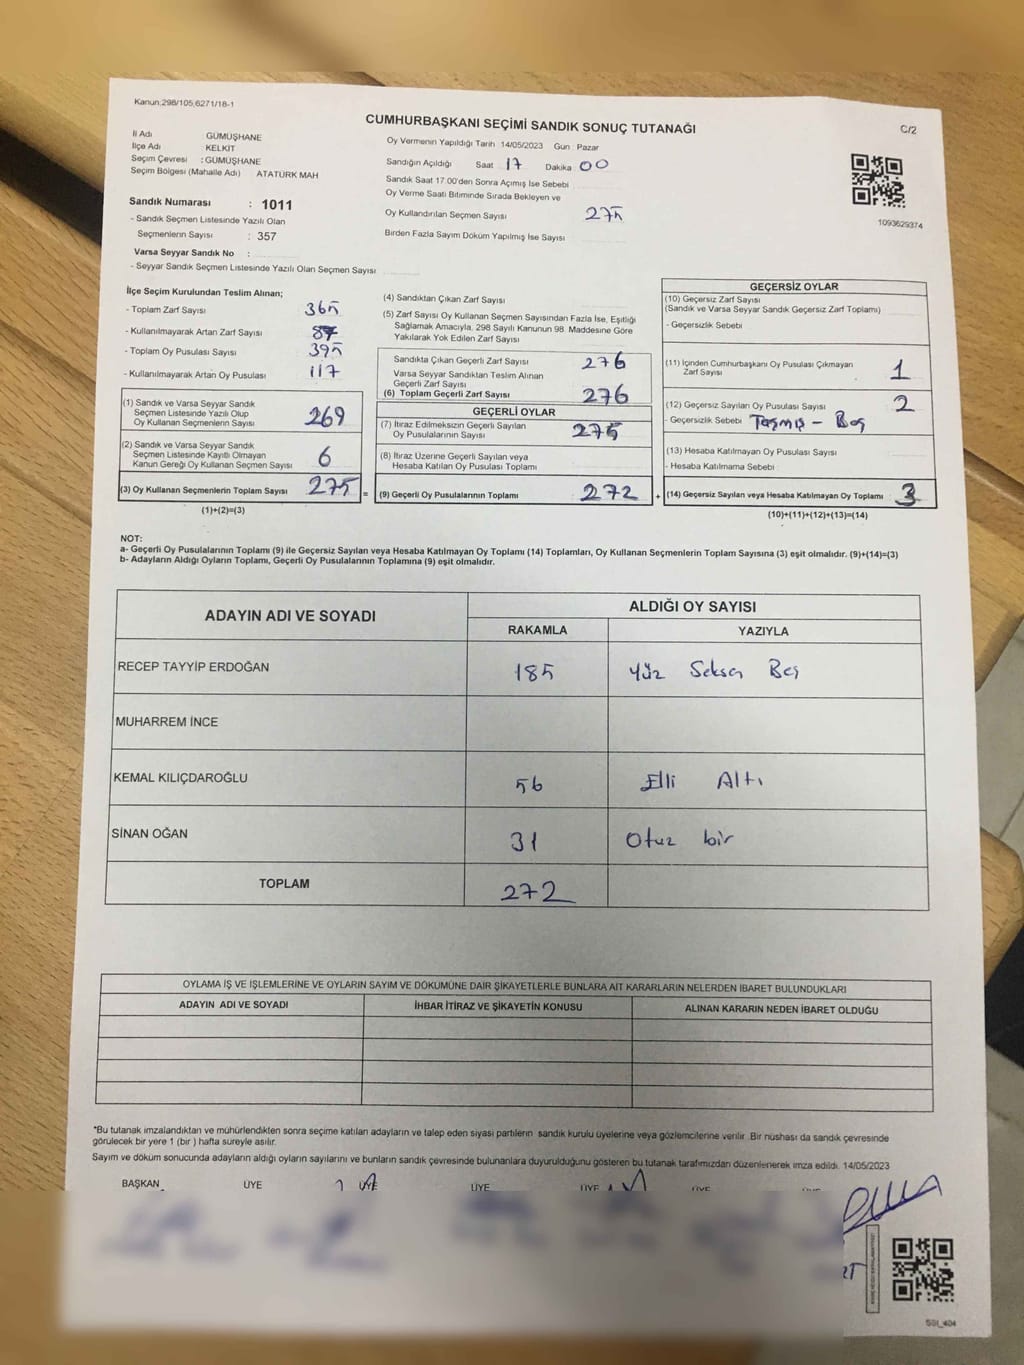 Kanun;298/105,6271/18-1
CUMHURBAŞKANI SEÇİMİ SANDIK SONUÇ TUTANAĞI
C/2
İl Adı GÜMÜŞHANE
İlçe Adı KELKİT
Seçim Çevresi : GÜMÜŞHANE
Seçim Bölgesi (Mahalle Adı) ATATÜRK MAH
Sandık Numarası : 1011
- Sandık Seçmen Listesinde Yazılı Olan
Seçmenlerin Sayısı : 357
Varsa Seyyar Sandık No :
- Seyyar Sandık Seçmen Listesinde Yazılı Olan Seçmen Sayısı
Oy Vermenin Yapıldığı Tarih 14/05/2023 Gün : Pazar
Sandığın Açıldığı Saat 17 Dakika 00
Sandık Saat 17.00'den Sonra Açımış İse Sebebi
Oy Verme Saati Bitiminde Sırada Bekleyen ve
Oy Kullandırılan Seçmen Sayısı 275
Birden Fazla Sayım Döküm Yapılmış İse Sayısı
1093629374
İlçe Seçim Kurulundan Teslim Alınan;
- Toplam Zarf Sayısı 365
- Kullanılmayarak Artan Zarf Sayısı 87
- Toplam Oy Pusulası Sayısı 395
- Kullanılmayarak Artan Oy Pusulası 117
(1) Sandık ve Varsa Seyyar Sandık
Seçmen Listesinde Yazılı Olup
Oy Kullanan Seçmenlerin Sayısı 269
(2) Sandık ve Varsa Seyyar Sandık
Seçmen Listesinde Kayıtlı Olmayan
Kanun Gereği Oy Kullanan Seçmen Sayısı 6
(3) Oy Kullanan Seçmenlerin Toplam Sayısı 275 =
(1)+(2)=(3)
(4) Sandıktan Çıkan Zarf Sayısı
(5) Zarf Sayısı Oy Kullanan Seçmen Sayısından Fazla İse, Eşitliği
Sağlamak Amacıyla, 298 Sayılı Kanunun 98. Maddesine Göre
Yakılarak Yok Edilen Zarf Sayısı
Sandıkta Çıkan Geçerli Zarf Sayısı 276
Varsa Seyyar Sandıktan Teslim Alınan
Geçerli Zarf Sayısı
(6) Toplam Geçerli Zarf Sayısı 276
GEÇERLİ OYLAR
(7) İtiraz Edilmeksizin Geçerli Sayılan
Oy Pusulalarının Sayısı 275
(8) İtiraz Üzerine Geçerli Sayılan veya
Hesaba Katılan Oy Pusulası Toplamı
(9) Geçerli Oy Pusulalarının Toplamı 272 +
GEÇERSİZ OYLAR
(10) Geçersiz Zarf Sayısı
(Sandık ve Varsa Seyyar Sandık Geçersiz Zarf Toplamı)
- Geçersizlik Sebebi
(11) İçinden Cumhurbaşkanı Oy Pusulası Çıkmayan
Zarf Sayısı 1
(12) Geçersiz Sayılan Oy Pusulası Sayısı 2
- Geçersizlik Sebebi Taşmış - Boş
(13) Hesaba Katılmayan Oy Pusulası Sayısı
- Hesaba Katılmama Sebebi
(14) Geçersiz Sayılan veya Hesaba Katılmayan Oy Toplamı 3
(10)+(11)+(12)+(13)=(14)
NOT:
a- Geçerli Oy Pusulalarının Toplamı (9) ile Geçersiz Sayılan veya Hesaba Katılmayan Oy Toplamı (14) Toplamları, Oy Kullanan Seçmenlerin Toplam Sayısına (3) eşit olmalıdır. (9)+(14)=(3)
b- Adayların Aldığı Oyların Toplamı, Geçerli Oy Pusulalarının Toplamına (9) eşit olmalıdır.
ADAYIN ADI VE SOYADI ALDIĞI OY SAYISI
RAKAMLA YAZIYLA
RECEP TAYYİP ERDOĞAN 185 Yüz Seksen Beş
MUHARREM İNCE
KEMAL KILIÇDAROĞLU 56 Elli Altı
SİNAN OĞAN 31 Otuz bir
TOPLAM 272
OYLAMA İŞ VE İŞLEMLERİNE VE OYLARIN SAYIM VE DÖKÜMÜNE DAİR ŞİKAYETLERLE BUNLARA AİT KARARLARIN NELERDEN İBARET BULUNDUKLARI
ADAYIN ADI VE SOYADI İHBAR İTİRAZ VE ŞİKAYETİN KONUSU ALINAN KARARIN NEDEN İBARET OLDUĞU
*Bu tutanak imzalandıktan ve mühürlendikten sonra seçime katılan adayların ve talep eden siyasi partilerin sandık kurulu üyelerine veya gözlemcilerine verilir. Bir nüshası da sandık çevresinde
görülecek bir yere 1 (bir ) hafta süreyle asılır.
Sayım ve döküm sonucunda adayların aldığı oyların sayılarını ve bunların sandık çevresinde bulunanlara duyurulduğunu gösteren bu tutanak tarafımızdan düzenlenerek imza edildi. 14/05/2023
BAŞKAN ÜYE ÜYE ÜYE ÜYE ÜYE ÜYE
SSI_404